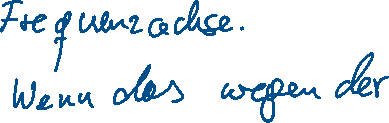 Frequenzachse.
Wenn das wegen der